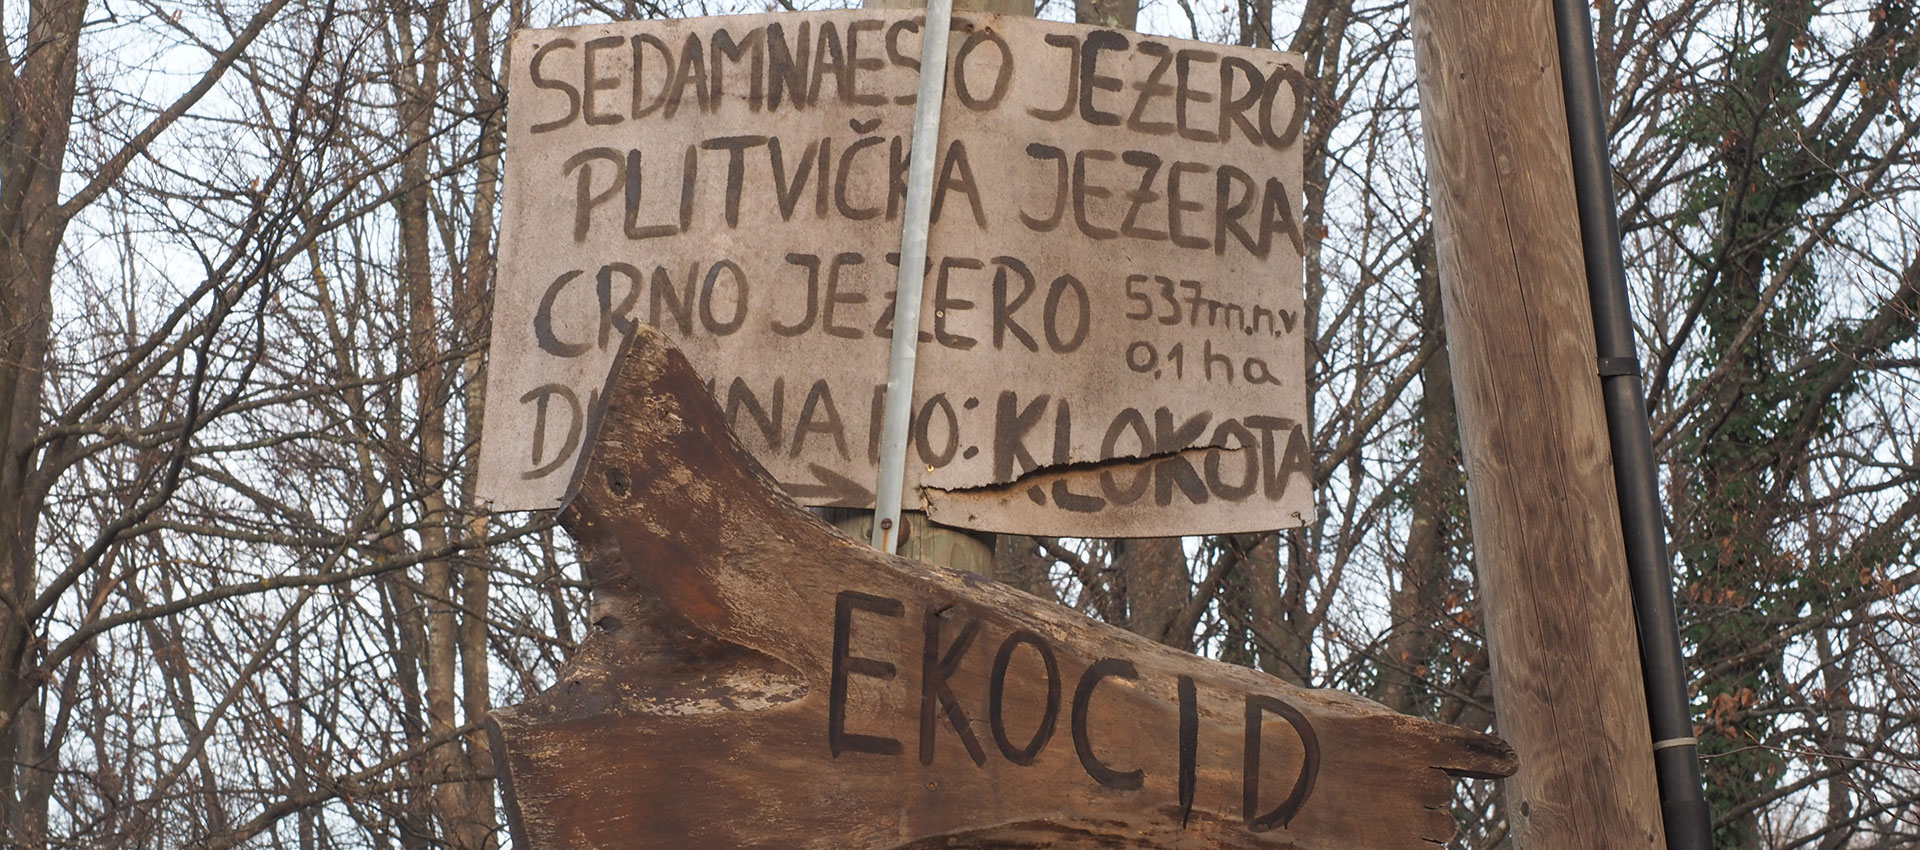 SEDAMNAESTO JEZERO
PLITVIČKA JEZERA
CRNO JEZERO 537m.n.v
0,1 ha
DO: KLOKOTA
EKOCID